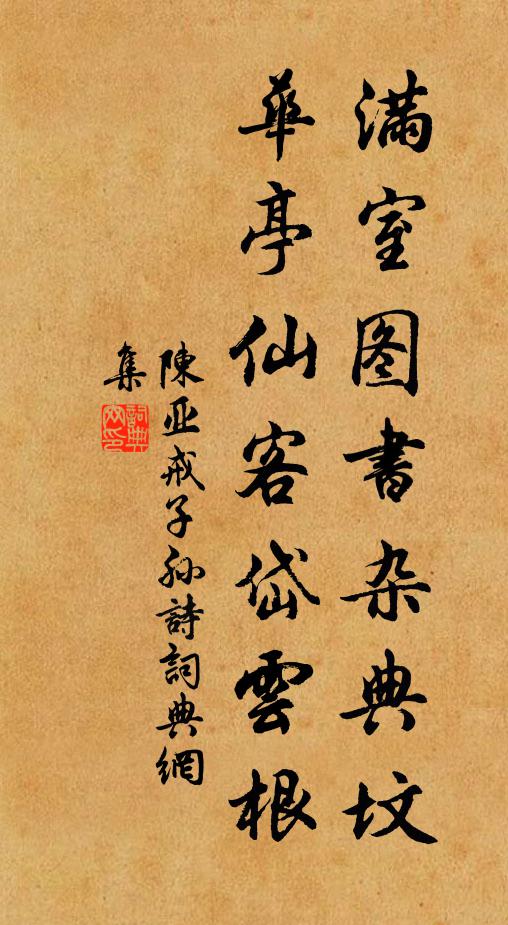 满室图書杂典坟
華亭仙客岱雲根
陳亚戒子孙詩詞典網
集
詞典网印